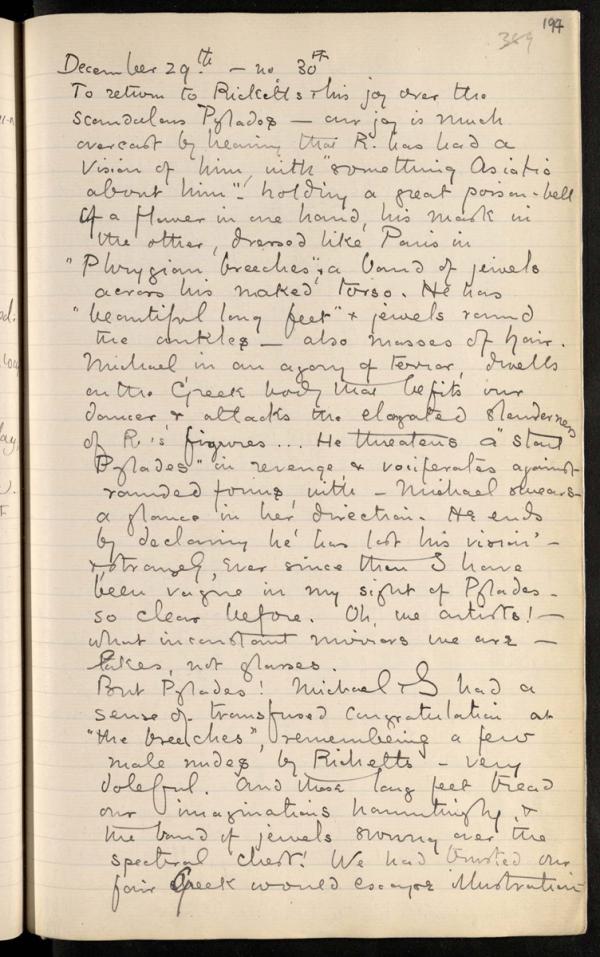 194
389
December 29th — no 30th
To return to Ricketts & his joy over the
scandalous Pylades — our joy is much
overcast by hearing that R. has had a
vision of him, with "something Asiatic
about him" – holding a great poison-bell
of a flower in one hand, his mask in
the other, dressed like Paris in
"Phrygian breeches", a band of jewels
across his naked torso. He has
"beautiful long feet" & jewels round
the ankles — also masses of hair.
Michael in an agony of terror, dwells
on the Greek body that befits our
dancer & attacks the elongated slenderness
of R.'s figures... He threatens a "stout
Pylades" in revenge & vociferates against
rounded forms, with – Michael swears –
a glance in her direction. He ends
by declaring he has lost his vision –
& strangely, ever since then I have
been vague in my sight of Pylades –
so clear before. Oh, we artists! —
what inconstant mirrors we are —
lakes, not glasses.
But Pylades! Michael & I had a
sense of transfused congratulation at
"the breeches", remembering a few
male nudes by Ricketts – very
doleful. And those long feet tread
our imaginations hauntingly, &
the band of jewels swung over the
spectral chest! We had trusted our
fair Greek would escape illustration